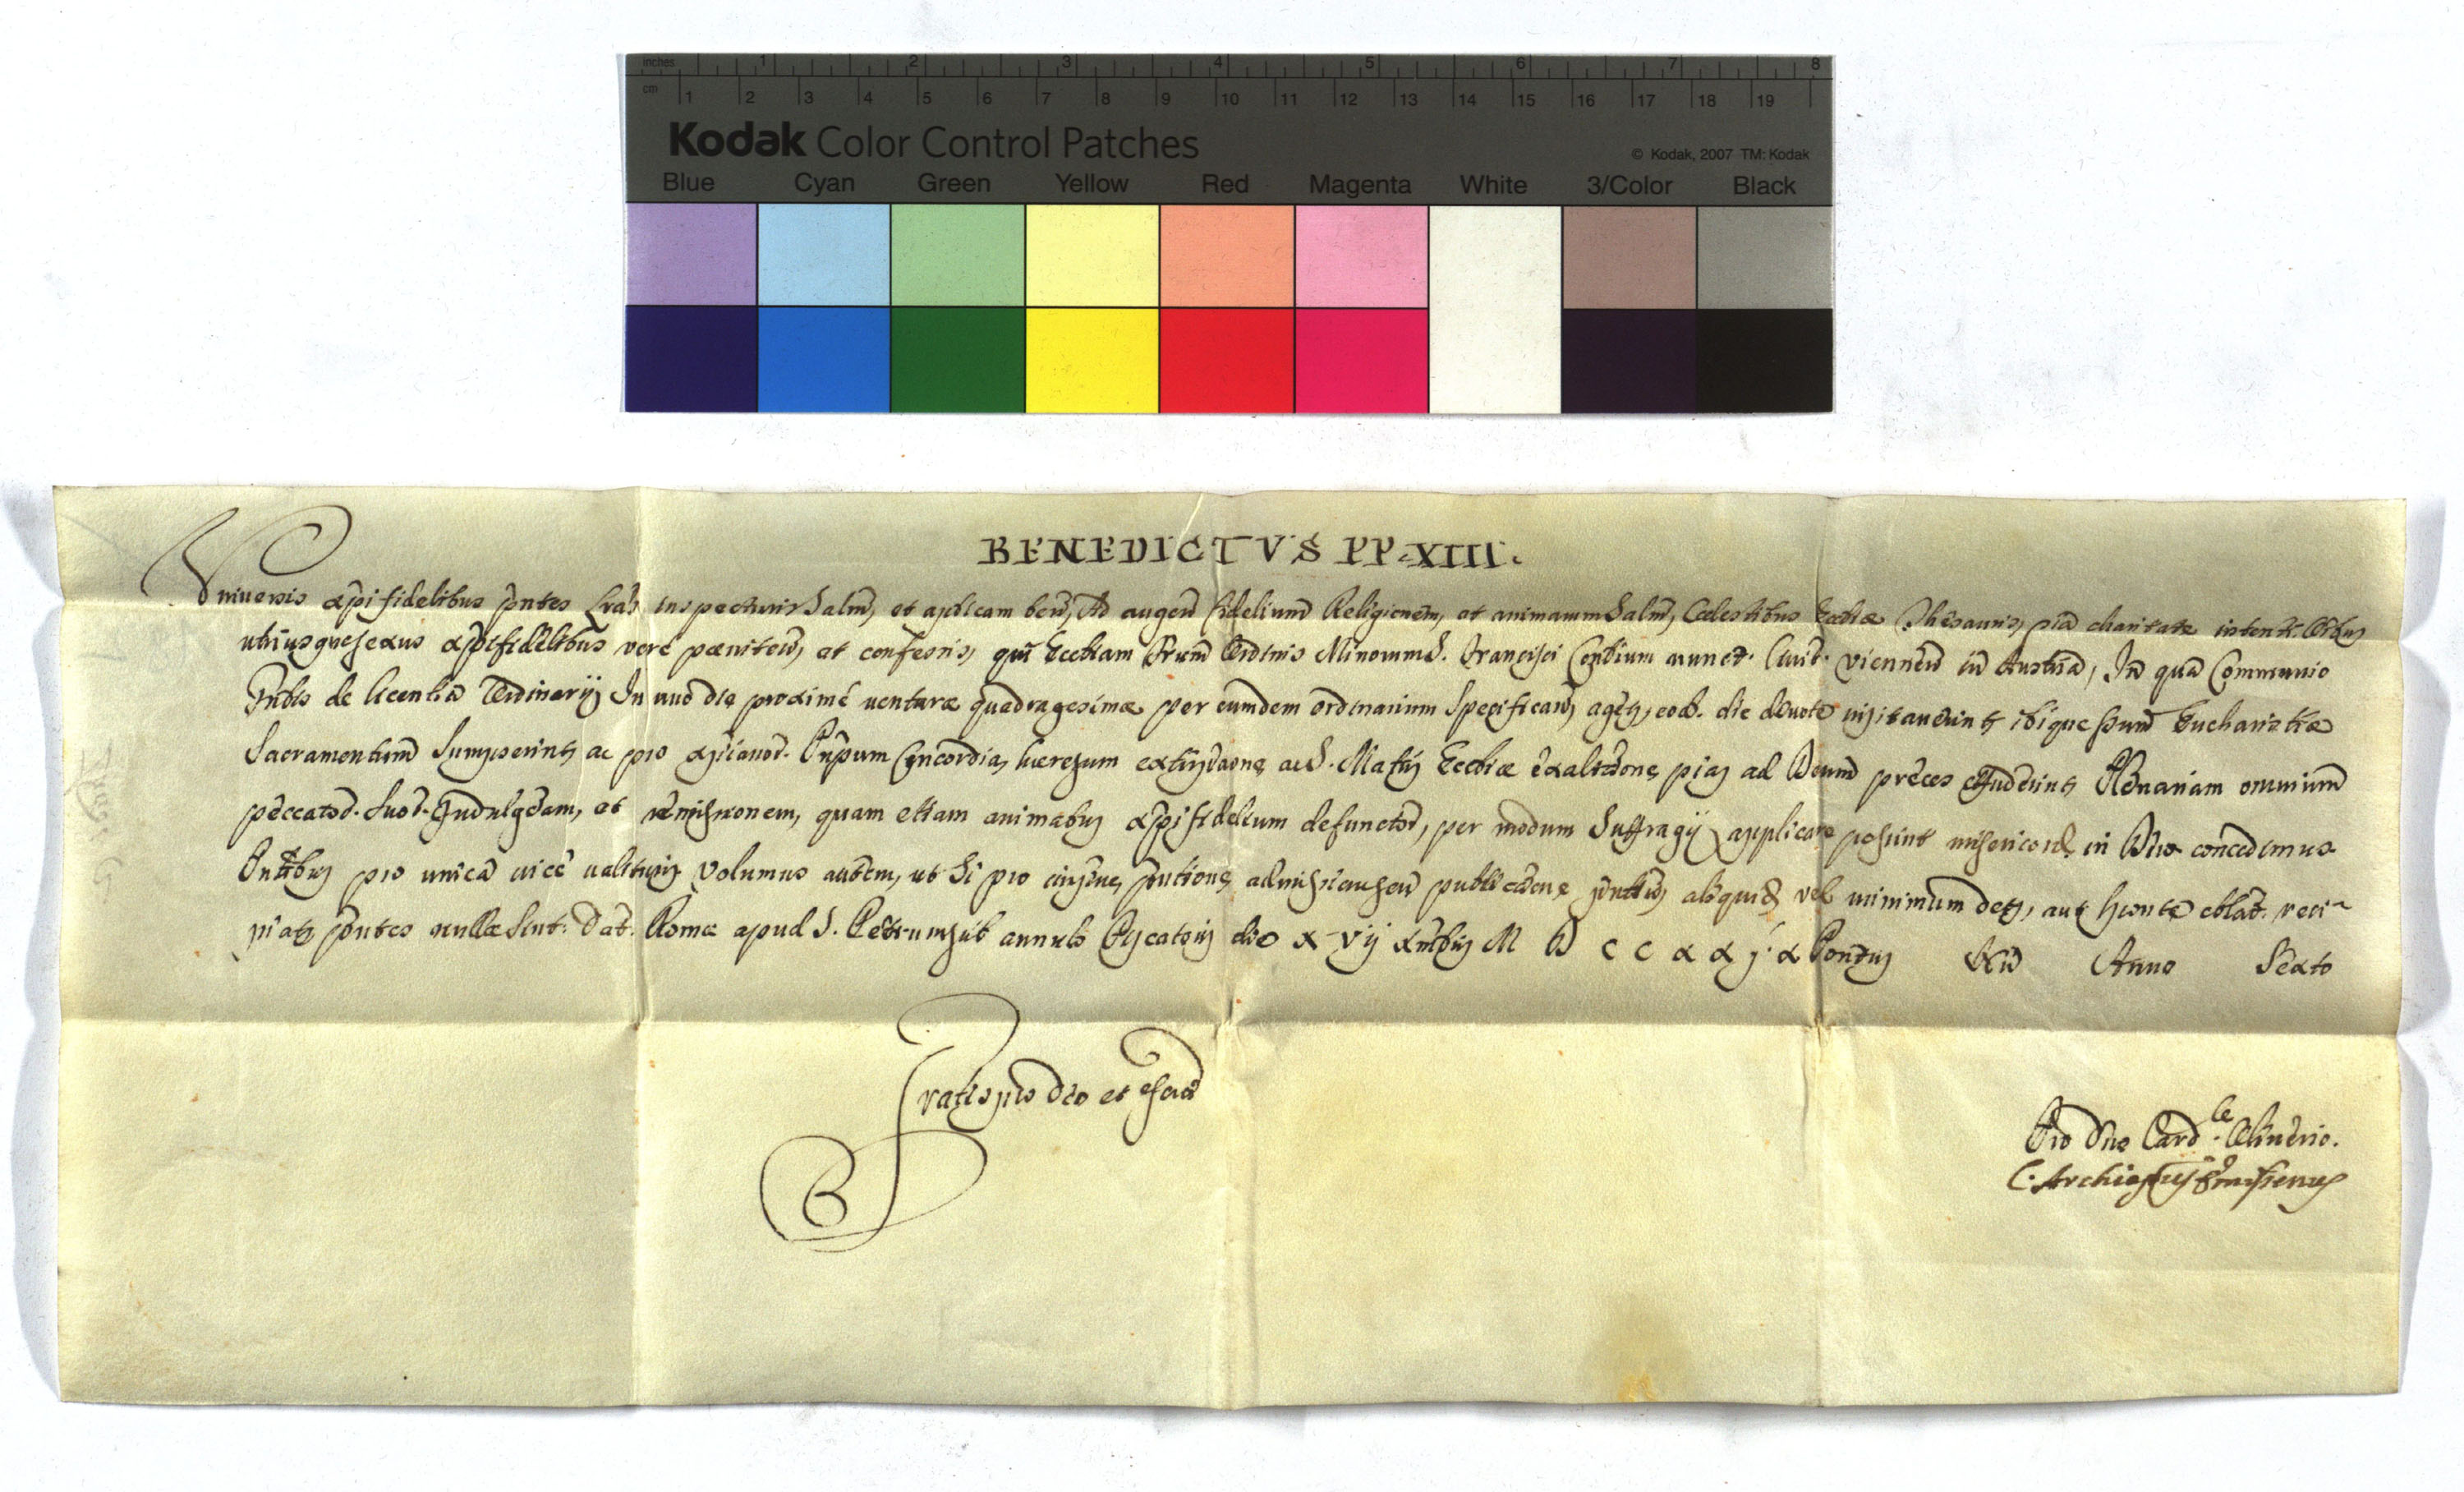 inches 1 2 3 4 5 6 7 8
cm 1 2 3 4 5 6 7 8 9 10 11 12 13 14 15 16 17 18 19
Kodak Color Control Patches
© Kodak, 2007 TM: Kodak
Blue Cyan Green Yellow Red Magenta White 3/Color Black
BENEDICTVS PP. XIII.
Universis xpi fidelibus pntes Lras inspecturis Salm, et aplicam ben, Ad augen fidelium Religionem, et animarum Salm, Cœlestibus Ecclæ Thesauris, pia charitate intenti Oibus
utriusque sexus xpi fidelibus verè pœniten, et confessis, qui Ecclam Frum Ordinis Minorum S. Francisci Conlium nunct. Civit. Viennen in Austria, In qua Communio
Gnlis de licentia Ordinarij In uno die proximè venturæ quadragesimæ per eumdem ordinarium specifican, agetr, eod. die devotè visitaverint, ibique ssmum Eucharistiæ
Sacramentum Sumpserint, ac pro xpianor. Pnpum Concordia, hæresum extirpaone, ac S. Matris Ecclæ exaltaone, pias ad Deum preces effuderint, Plenariam omnium
peccator. suor. Indulgeam, et remissionem, quam etiam animabus xpi fidelium defunctor, per modum Suffragij applicare possint misericord. in Dno concedimus
Pntibus pro unica vice valituris Volumus autem, ut Si pro impne, pntione, admissione, seu publicaone pntium, aliquid vel minimum detur, aut sponte oblat. reci-
piatr, pntes nullæ Sint. Dat. Romæ apud S. Petrum sub annulo Piscatoris die XVij Xmbris M D C C X X j. X Pontus Nri Anno Sexto
Gratis pro Deo et Scra
B
Pro Dno Card.le Oliverio.
C. Archiepus Emissenus